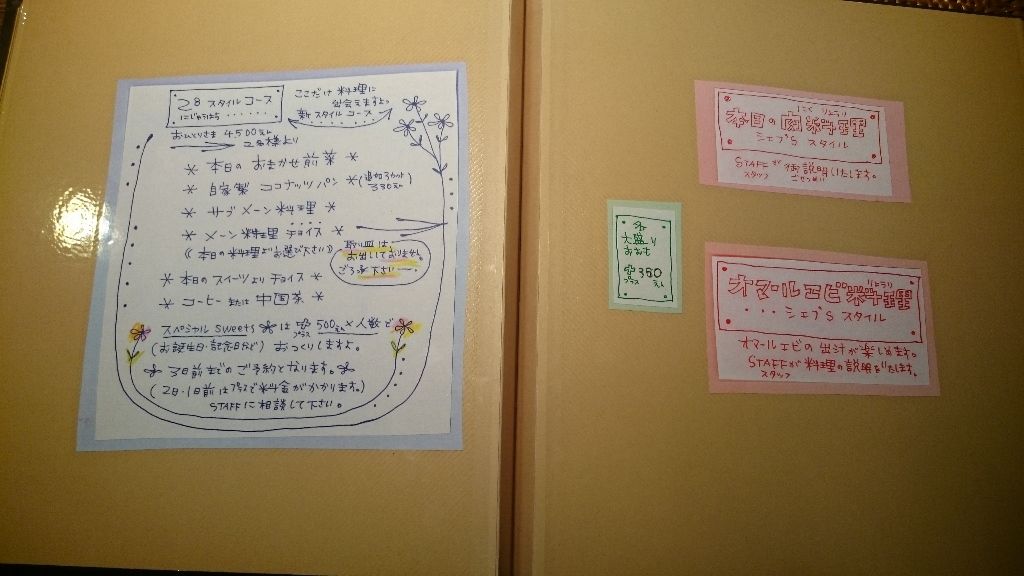 28 スタイルコース
にじゅうはち ・・・・・・
ここだけ 料理に
出会えますよ。
新 スタイル コース
おひとりさま 4500えん
2名様より
* 本日の おまかせ前菜 *
* 自家製 ココナッツパン * (追加1カット
330えん)
* サブメーン料理 *
* メーン料理 チョイス *
《本日の料理よりお選び下さい》
取り皿は、
お出ししておりません。
ご了承下さい
* 本日のスイーツより チョイス *
* コーヒー または 中国茶 *
スペシャル sweets は プラス 500えん×人数で
(お誕生日・記念日など) おつくりしますよ。
3日前までのご予約となります。
(2日・1日前はプラスで料金がかかります。)
STAFFに相談して下さい。
各
大盛り
プラス 350
えん
にく りょうり
本日の肉料理
シェフ'S スタイル
STAFFが御説明いたします。
スタッフ ごせつめい
りょうり
オマールエビ料理
・・・ シェフ'S スタイル
オマールエビの出汁が楽しめます。
STAFFが料理の説明をいたします。
スタッフ